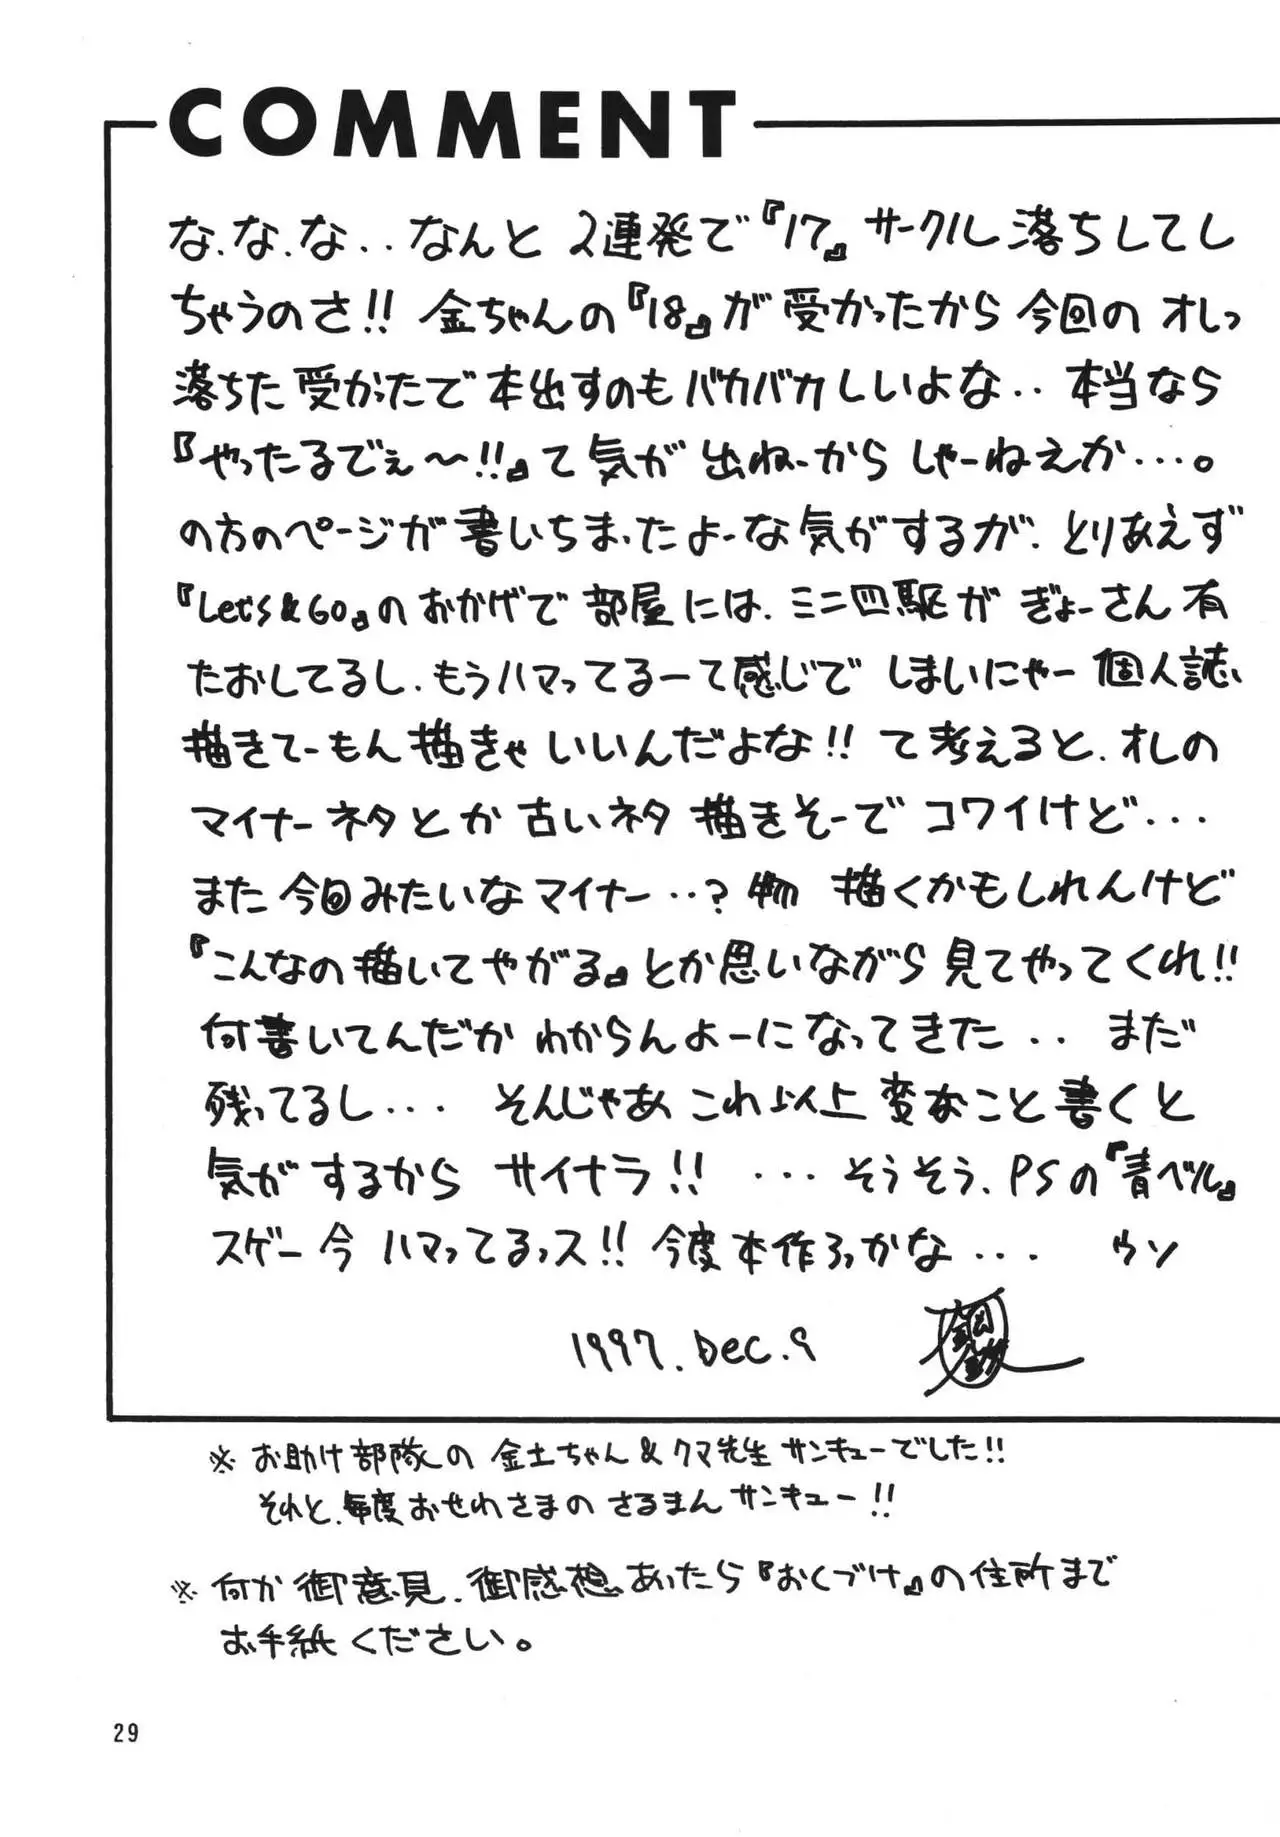 COMMENT
な、な、な‥なんと 2連発で『17』サークル落ちしてし
ちゃうのさ!! 金ちゃんの『18』が受かったから今回の オレっ
落ちた受かたで本出すのもバカバカしいよな‥ 本当なら
『やったるでぇ〜!!』て気が出ねーからしゃーねえか…。
の方のページが書いちまったよーな気がするが、とりあえず
『Let's&GO』のおかげで部屋には、ミニ四駆が ぎょーさん有
たおしてるし、もうハマってるーて感じで しまいにゃー個人誌、
描きてーもん描きゃいいんだよな!! て考えると、オレの
マイナーネタとか古いネタ描きそーでコワイけど…
また今回みたいなマイナー‥?物 描くかもしれんけど
『こんなの描いてやがる』とか思いながら見てやってくれ!!
何書いてんだかわからんよーになってきた‥ まだ
残ってるし… そんじゃあこれ以上変なこと書くと
気がするから サイナラ!! …そうそう、PSの『青ベル』
スゲー今ハマってるっス!! 今度本作ろっかな… ウソ
1997.Dec.9
※お助け部隊の 金土ちゃん&クマ先生サンキューでした!!
それと、毎度おせわさまの さるまんサンキュー!!
※何か御意見、御感想あいたら『おくづけ』の住所まで
お手紙ください。
29